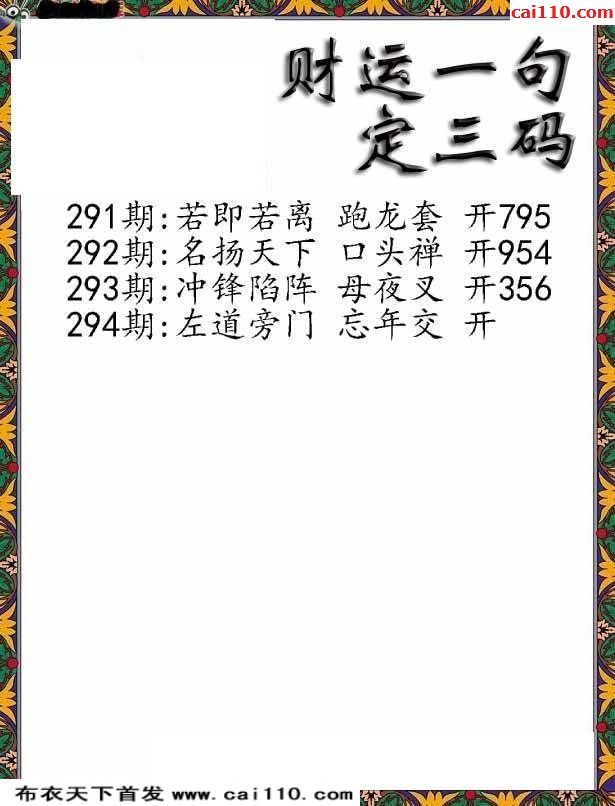 cai110.com
财运一句
定三码
291期:若即若离 跑龙套 开795
292期:名扬天下 口头禅 开954
293期:冲锋陷阵 母夜叉 开356
294期:左道旁门 忘年交 开
布衣天下首发 www.cai110.com